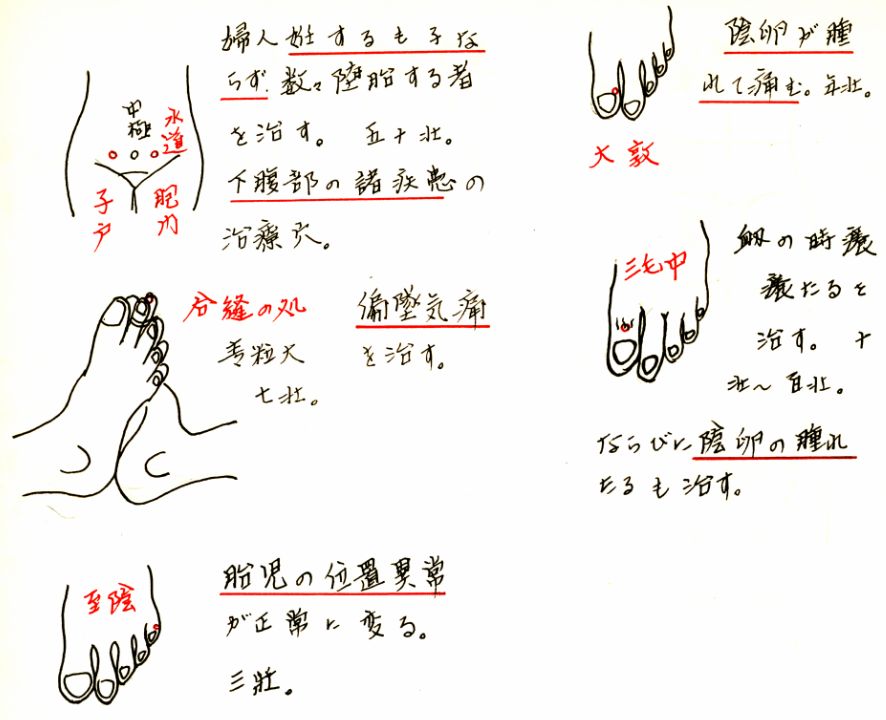 婦人妊するも子な
らず. 数々堕胎する者
を治す。 五十壮。
下腹部の諸疾患の
治療穴。
中極
水道
子戸
胞門
合縫の処
麦粒大
七壮。
偏墜気痛
を治す。
至陰
胎児の位置異常
が正常に変る。
三壮。
陰卵が腫
れて痛む。年壮。
大敦
三毛中
卵の時
たるを
治す。 十
壮〜百壮。
ならびに陰卵の腫れ
たるも治す。